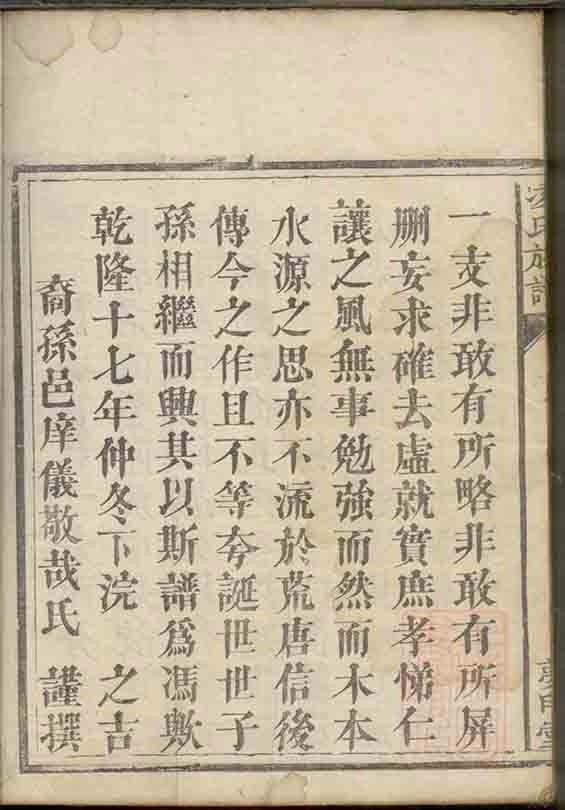 氏族譜
一支非敢有所略非敢有所屏
刪妄求確去虛就實庶孝悌仁
讓之風無事勉強而然而木本
水源之思亦不流於荒唐信後
傳今之作且不等夸誕世世子
孫相繼而興其以斯譜為馮歟
乾隆十七年仲冬下浣　之吉
裔孫邑庠儀敬哉氏　謹撰